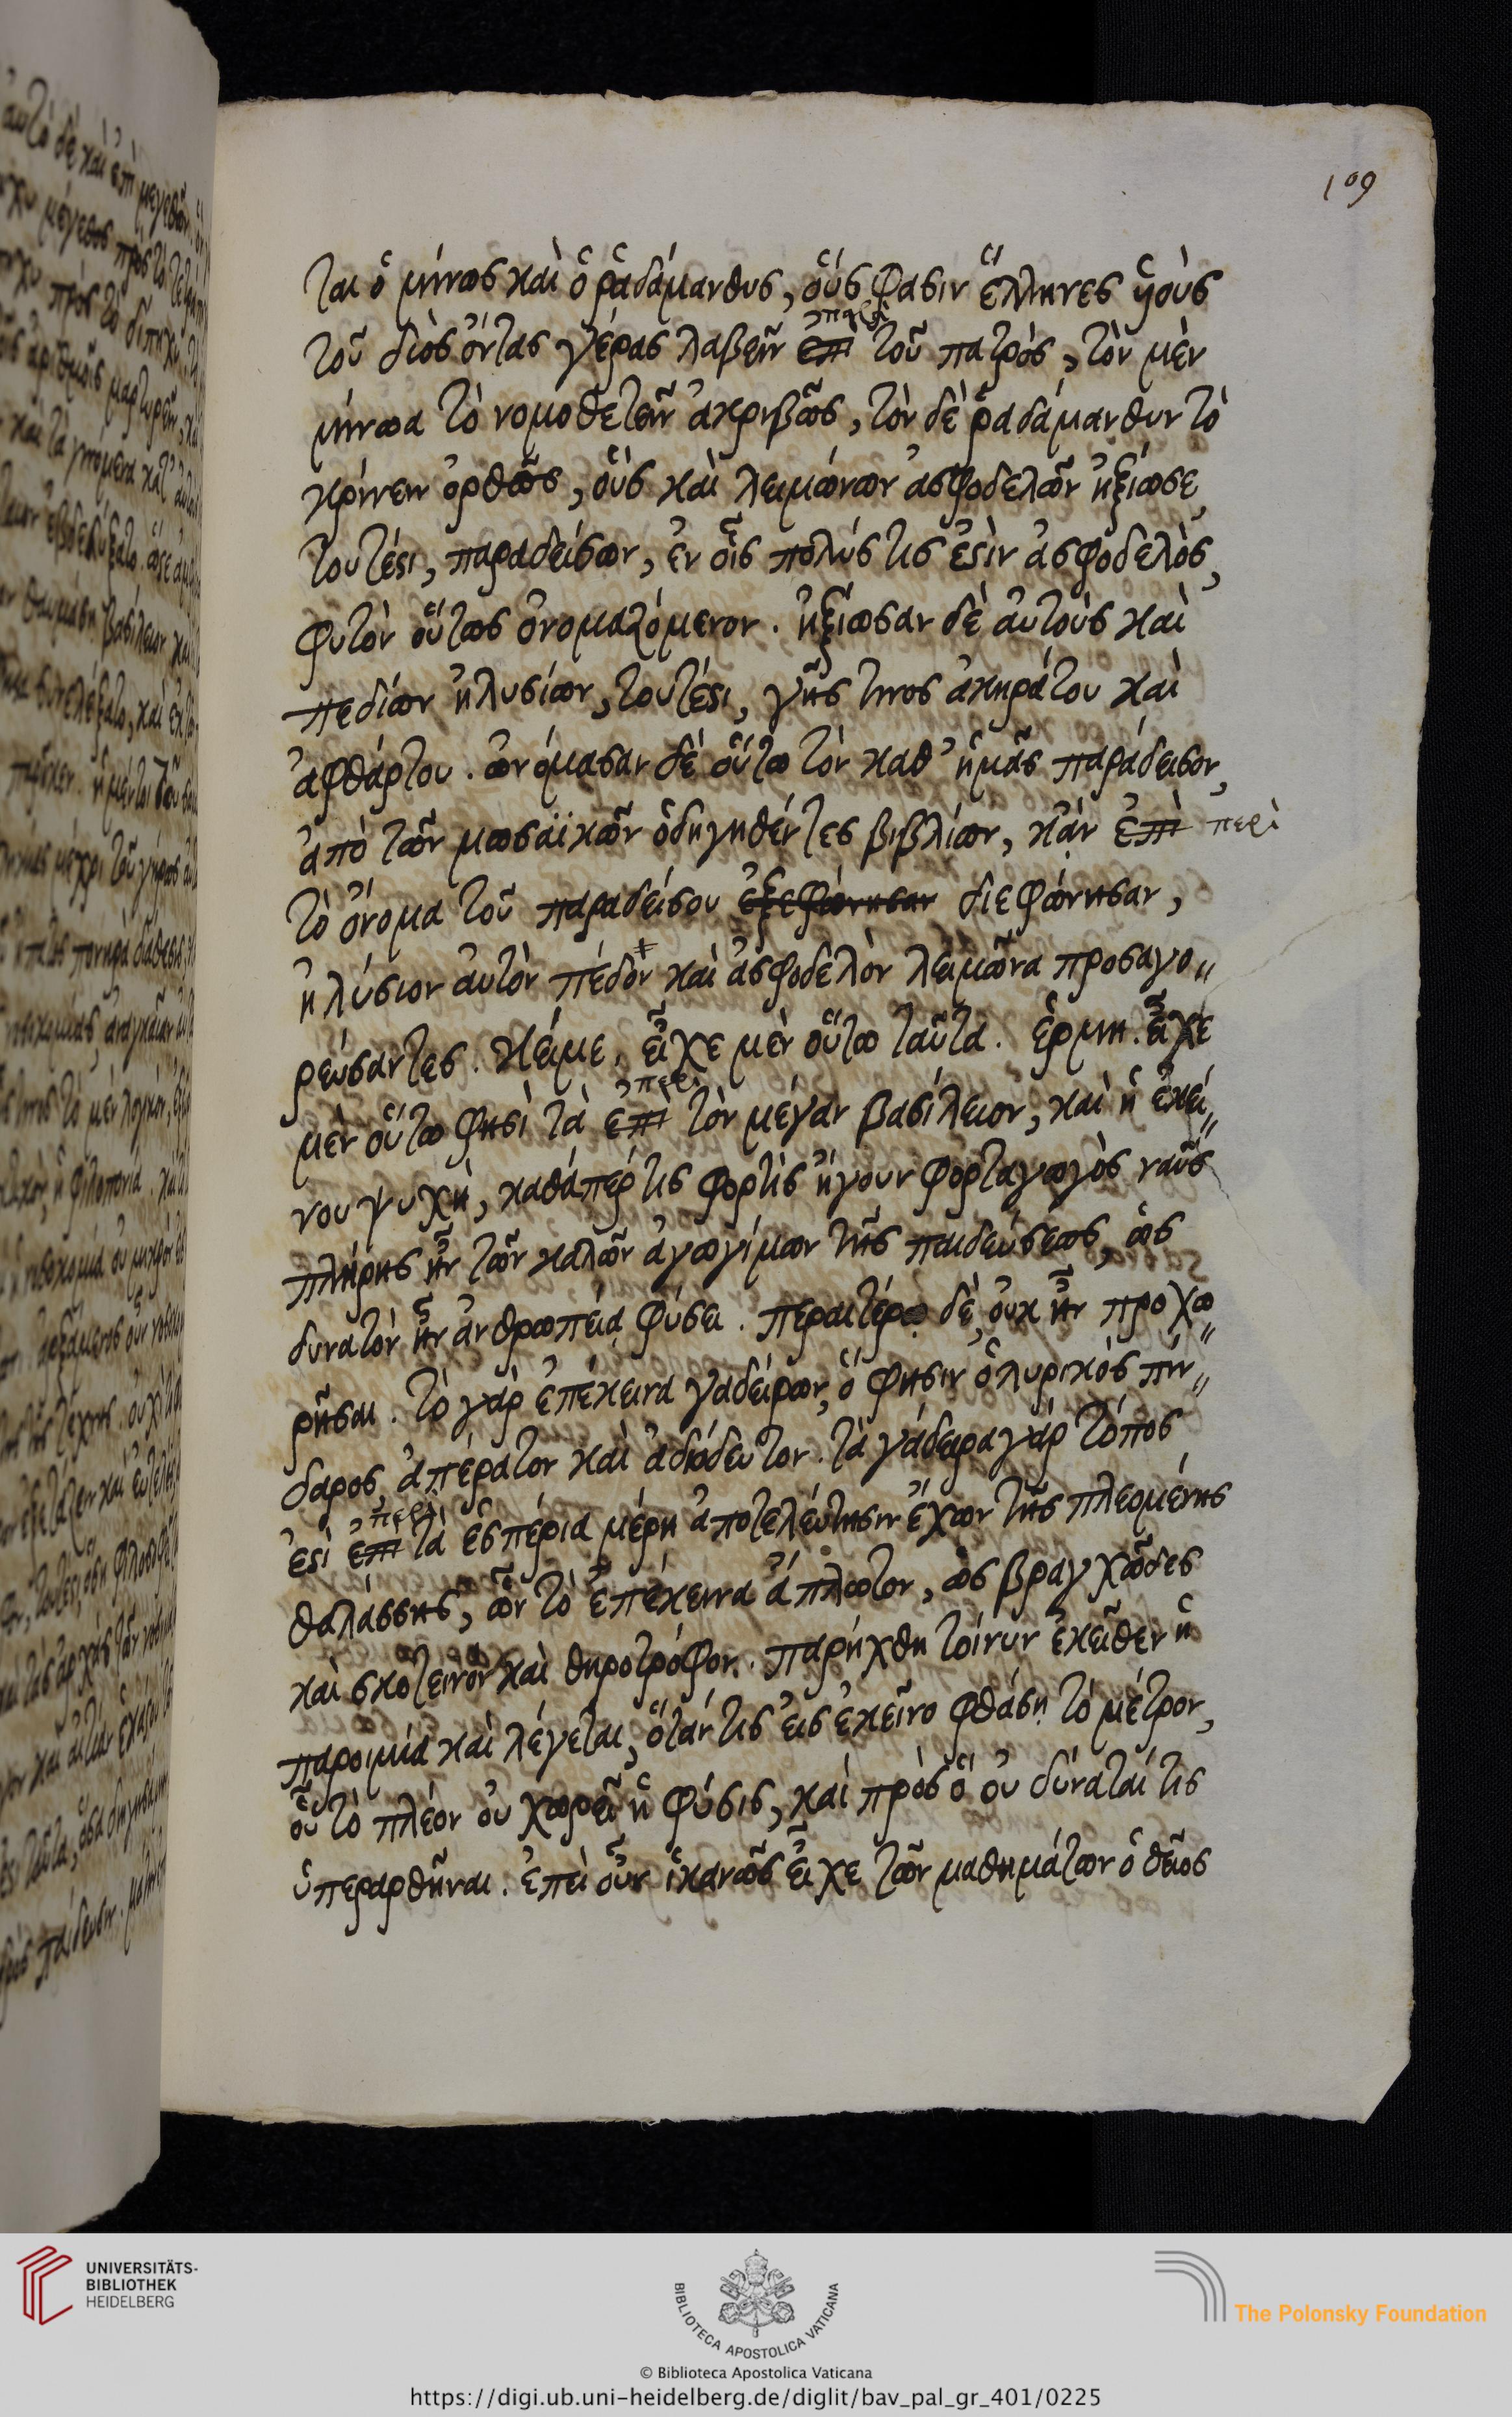 109
ται ὁ μίνως καὶ ὁ ῥαδάμανθυς, οὕς φασιν ἕλληνες υἱοὺς
παρὰ
τοῦ διὸς ὄντας γέρας λαβεῖν ἐπὶ τοῦ πατρὸς, τὸν μὲν
μίνωα τὸ νομοθετεῖν ἀκριβῶς, τὸν δὲ ῥαδάμανθυν τὸ
κρίνειν ὀρθῶς, οὓς καὶ λειμώνων ἀσφοδελῶν ἠξίωσε,
τουτέςι, παραδείσων, ἐν οἷς πολύς τις ἐςὶν ἀσφοδελὸς,
φυτὸν οὕτως ὀνομαζόμενον. ἠξίωσαν δὲ αὐτοὺς καὶ
πεδίων ἠλυσίων, τουτέςι, γῆς τινος ἀκηράτου καὶ
ἀφθάρτου. ὠνόμασαν δὲ οὕτω τὸν καθ' ἡμᾶς παράδεισον,
ἀπὸ τῶν μωσαϊκῶν ὁδηγηθέντες βιβλίων, κἂν ἐπὶ περὶ
τὸ ὄνομα τοῦ παραδείσου ἐξεφώνησαν διεφώνησαν,
ἠλύσιον αὐτὸν πέδον καὶ ἀσφοδελὸν λειμῶνα προσαγο〃
ρεύσαντες. κείμε. εἶχε μὲν οὕτω ταῦτα. ἑρμη. εἶχε
περὶ
μὲν οὕτω φησὶ τὰ ἐπὶ τὸν μέγαν βασίλειον, καὶ ἡ ἐκεί〃
νου ψυχὴ, καθάπερ τις φορτὶς ἤγουν φορταγωγὸς ναῦς
πλήρης ἦν τῶν καλῶν ἀγωγίμων τῆς παιδεύσεως, ὡς
δυνατὸν ἦν ἀνθρωπείᾳ φύσει. περαιτέρω δὲ οὐκ ἦν προχω〃
ρῆσαι. τὸ γὰρ ἐπέκεινα γαδείρων, ὅ φησιν ὁ λυρικὸς πίν〃
δαρος, ἀπέρατον καὶ ἀδιόδευτον. τὰ γάδειρα γάρ τόπος
περὶ
ἐςὶ ἐπὶ τὰ ἑσπέρια μέρη ἀποτελεύτησιν ἔχων τῆς πλεομένης
θαλάσσης, ὧν τὸ ἐπέκεινα ἄπλωτον, ὡς βραγχῶδες
καὶ σκοτεινὸν καὶ θηροτρόφον. παρήχθη τοίνυν ἐκεῖθεν ἡ
παροιμία καὶ λέγεται, ὅταν τις εἰς ἐκεῖνο φθάσῃ τὸ μέτρον,
οὗ τὸ πλέον οὐ χωρεῖ ἡ φύσις, καὶ πρὸς ὃ οὐ δύναταί τις
ὑπεραρθῆναι. ἐπεὶ οὖν ἱκανῶς εἶχε τῶν μαθημάτων ὁ θεῖος
UNIVERSITÄTS-
BIBLIOTHEK
HEIDELBERG
BIBLIOTECA APOSTOLICA VATICANA
The Polonsky Foundation
© Biblioteca Apostolica Vaticana
https://digi.ub.uni-heidelberg.de/diglit/bav_pal_gr_401/0225